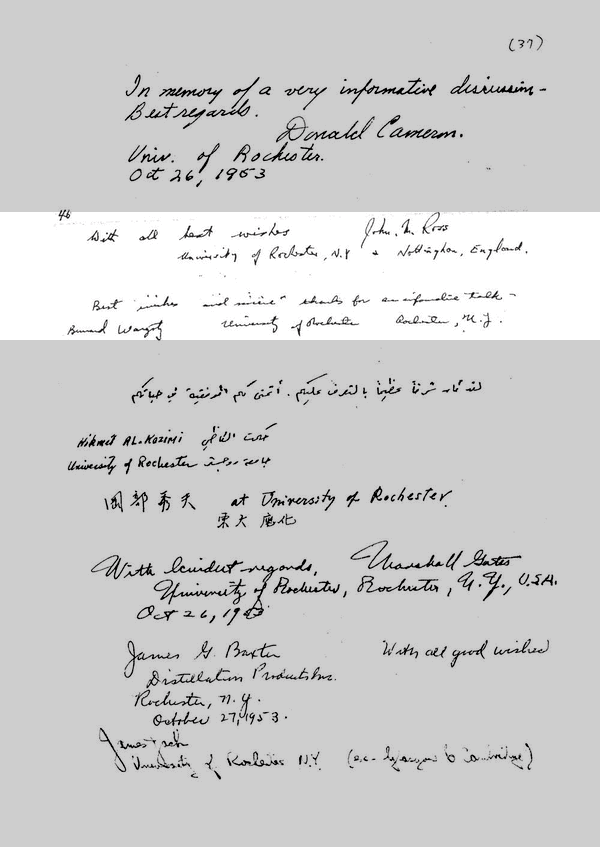 (37)
In memory of a very informative discussion -
Best regards.
Donald Cameron.
Univ. of Rochester.
Oct 26, 1953
46
With all best wishes John. M. Ross
University of Rochester, N.Y & Nottingham, England.
Best wishes and sincere thanks for an informative talk -
University of Rochester Rochester, N.Y.
لقد نلت شرفا عظيما بالتعرف عليكم . أتمنى لكم الموفقية في حياتكم
Hikmet AL-Kozimi حكمت
University of Rochester جامعة
岡部希夫 at University of Rochester.
東大 應化
With kindest regards, Marshall Gates
University of Rochester, Rochester, N.Y., U.S.A.
Oct 26, 1953
James G. Baxter With all good wishes
Distillation Products Inc.
Rochester, N.Y.
October 27, 1953.
James
University of Rochester N.Y. (ex- Glasgow & Cambridge)